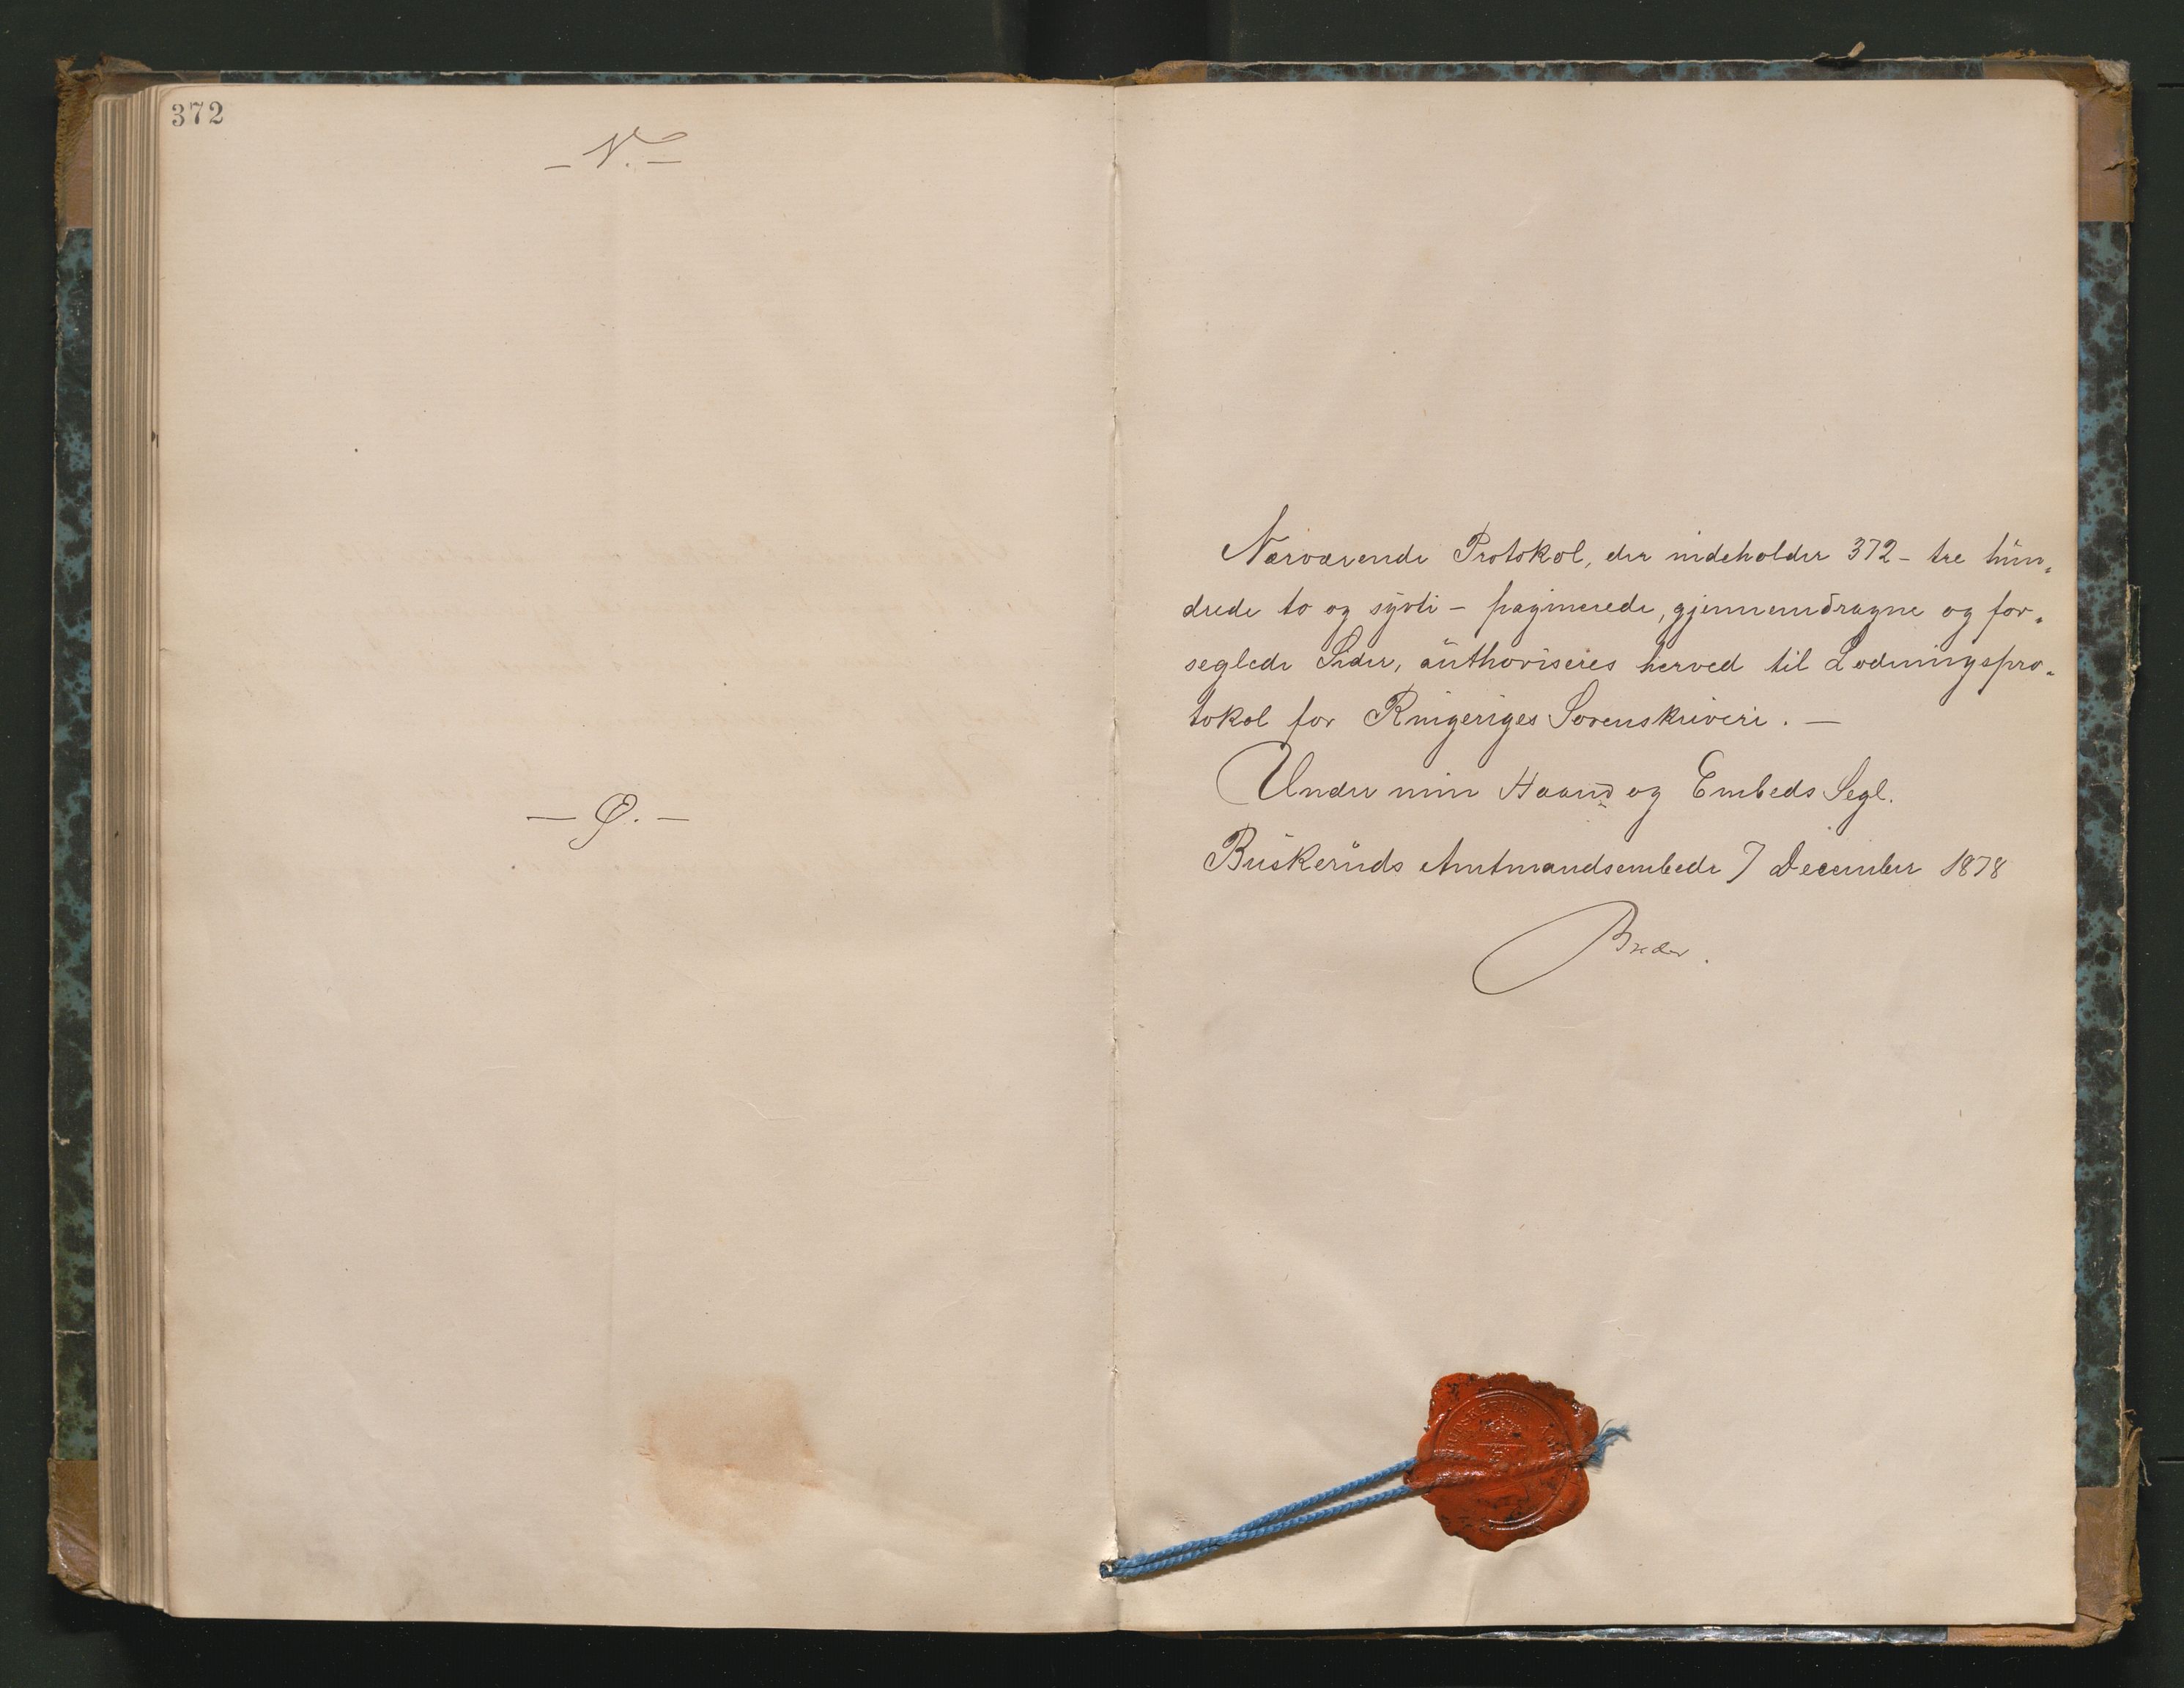 372
— V. —
— Ø. —
Nærværende Protokol, der indeholder 372 - tre hun-
drede to og sytti - paginerede, gjennemdragne og for-
seglede Sider, authoriseres herved til Lodningspro-
tokol for Ringeriges Sorenskriveri. —
Under min Haand og Embeds Segl.
Buskeruds Amtmandsembede 7 December 1878
Breder.
BUSKERUDS AMT